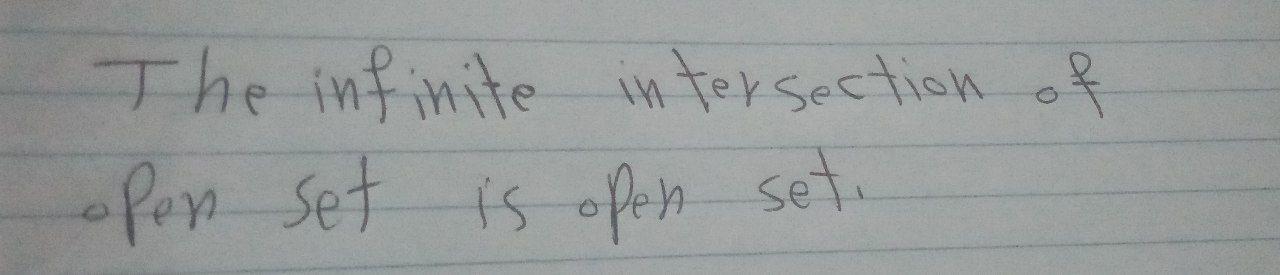 The infinite intersection of
open set is open set.